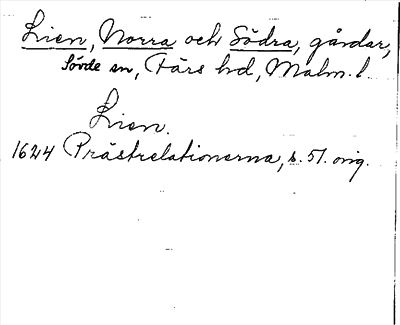 Lien, Norra och Södra, gårdar,
Sövde sn, Färs hd, Malm. l.
Lien.
1624 Prästrelationerna, s. 51. orig.